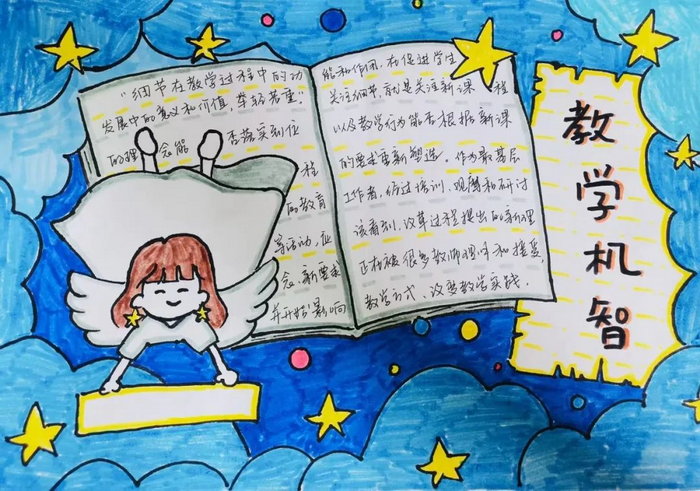 教学机智
"细节在教学过程中的功
发展中的意义和价值,举轻若重.
的理念能 否落实到位
程
的教育
等活动,应
念,新要求
并开始影响
能和作用,在促进学生
关注细节,就是关注新课 程
以及教学行为能否根据新课
的要求重新塑造。作为最基层
工作者,仿过培训、观磨和研讨
该看到,改革过程提出的新理
正在被很多教师理解和接受
教学方式、这些教学实践.